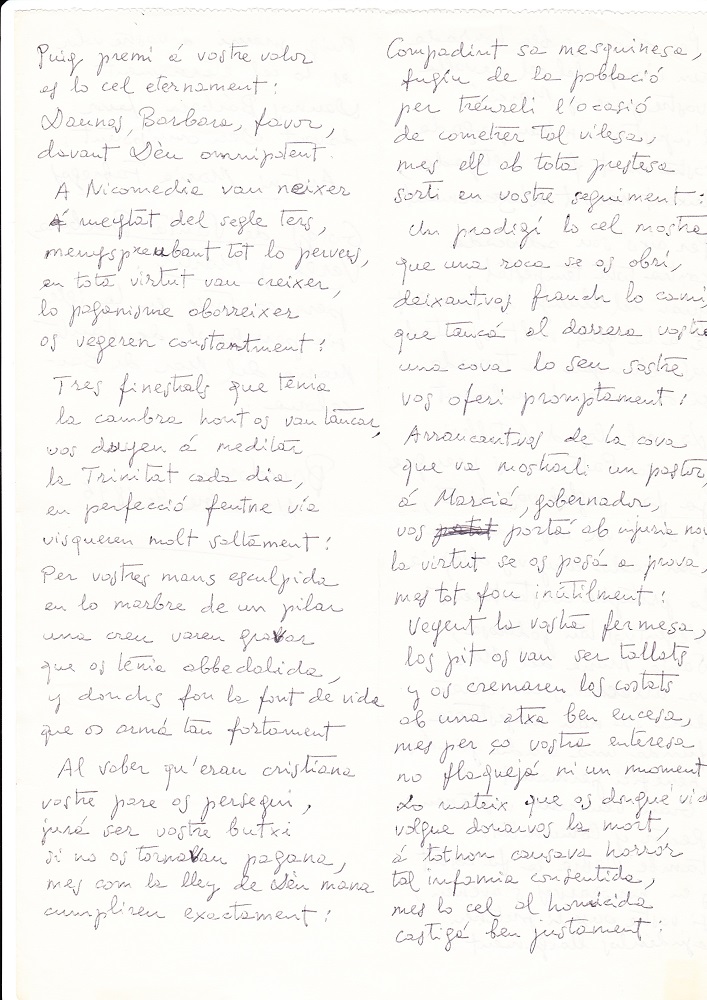 Puig premi á vostre valor
es lo cel eternament:
Daunos, Barbara, favor,
davant Dèu omnipotent.
A Nicomedia van neixer
á meytat del segle ters,
menyspreubant tot lo pervers,
en tota virtut van creixer,
lo paganisme aborreixer
os vegeren constantment:
Tres finestrals que tenia
la cambra hont os van tancar,
vos duyen á meditar
la Trinitat cada dia,
en perfecció fentne via
visqueren molt saltament:
Per vostres mans esculpida
en lo marbre de un pilar
una creu varen gravar
que os tenia abbedalida,
y donchs fou la font de vida
que os armá tan fortament
Al saber qu'eran cristiana
vostre pare os perseguí,
jurá ser vostre butxi
si no os tornavan pagana,
mes com la lley de Dèu mana
cumpliren exactament:
Compadint sa mesquinesa,
fugiu de la població
per tréureli l'ocasió
de cometrer tal vilesa,
mes ell ab tota prestesa
sorti en vostre seguiment:
Un prodigi lo cel mostra
que una roca se os obrí,
deixantvos franch lo camí,
que tancá al darrera vostre
una cova lo seu sostre
vos oferi promptament:
Arrancantvos de la cova
que va mostrarli un pastor,
á Marciá, gobernador,
vos portá ab injuria nov
la virtut se os posá a prova,
mes tot fou inútilment:
Vegent la vostra fermesa,
los pit os van ser tallats
y os cremaren los costats
ab una atxa ben encesa,
mes per ço vostra enteresa
no flaquejá ni un moment
Lo mateix que os dongué vid
volgue donarvos la mort,
á tothon causava horrór
tal infamia consentida,
mes lo cel al homicida
castigá ben justament: